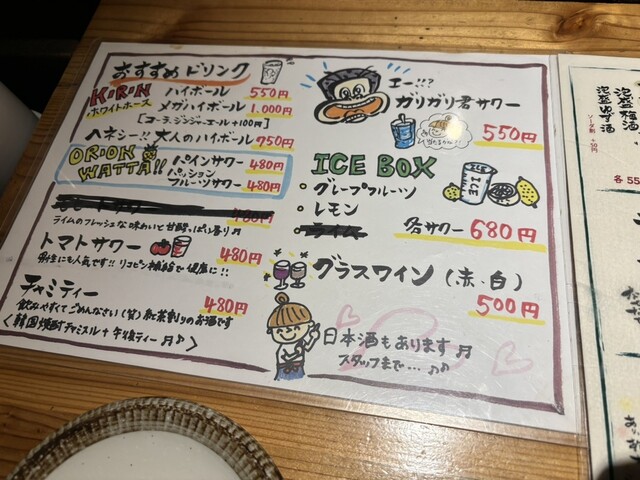 おすすめドリンク
KIRIN ハイボール 550円
ホワイトホース メガハイボール 1,000円
[コーラ、ジンジャーエール+100円]
ヘネシー!! 大人のハイボール 750円
ORION WATTA!!
パインサワー 480円
パッションフルーツサワー 480円
ライムのフレッシュな味わいと甘酸っぱい香り♬
トマトサワー 480円
チャミティー 480円
飲みやすくてごめんなさい(笑)紅茶割りのお酒です
<韓国焼酎チャミスル+午後ティー♬♪>
エー!!?
ガリガリ君サワー
550円
ICE BOX
・グレープフルーツ
・レモン
各サワー 680円
ICE
グラスワイン(赤、白)
500円
日本酒もあります♬
スタッフまで…♪♪
泡盛梅酒
泡盛ゆず酒
ソーダ割 +50円
各55